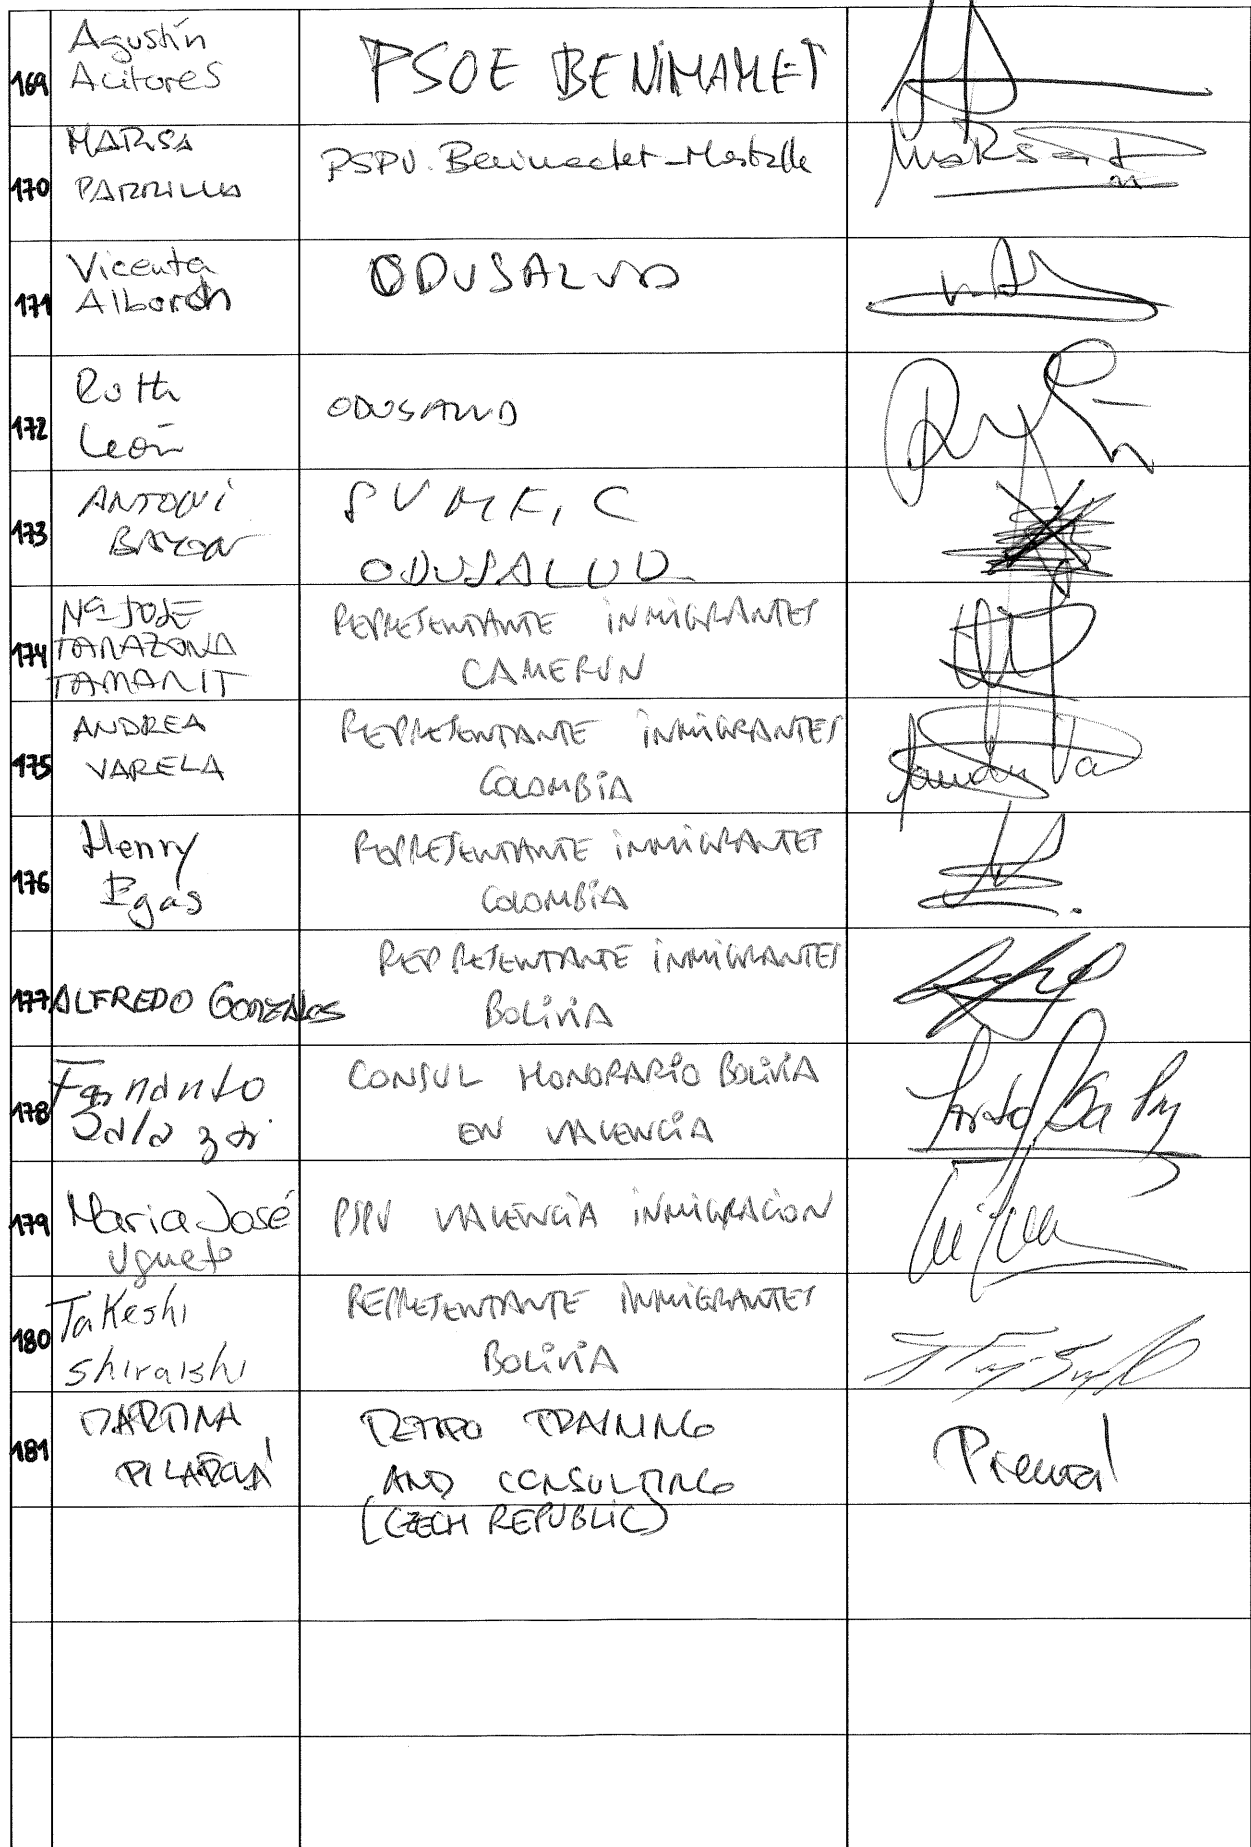 169 Agustín
Acitores
PSOE BENIMAMET
170 MARISA
PARRILLA
PSPV. Benimaclet-Mestalla
171 Vicenta
Alborch
ODUSALUD
172 Ruth
León
ODUSALUD
173 ANTONI
BAYON
SVMF.C
ODUSALUD
174 Mª JOSE
TARAZONA
TAMARIT
REPRESENTANTE INMIGRANTES
CAMERUN
175 ANDREA
VARELA
REPRESENTANTE INMIGRANTES
COLOMBIA
176 Henry
Egas
REPRESENTANTE INMIGRANTES
COLOMBIA
177 ALFREDO GONZALES
REPRESENTANTE INMIGRANTES
BOLIVIA
178 Fernando
Salazar
CONSUL HONORARIO BOLIVIA
EN VALENCIA
179 Maria José
Ugueto
PSPV VALENCIA INMIGRACION
180 Takeshi
Shiraishi
REPRESENTANTE INMIGRANTES
BOLIVIA
181 MARTINA
TRAINING
AND CONSULTING
(CZECH REPUBLIC)